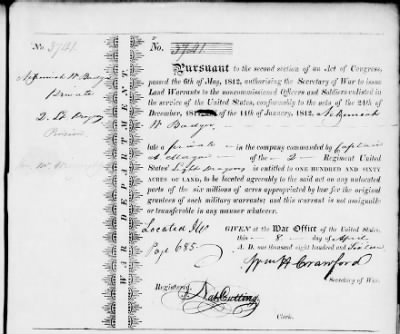 No. 3741.
No. 3741
Private
WAR DEPARTMENT
Pursuant to the second section of an Act of Congress,
passed the 6th of May, 1812, authorising the Secretary of War to issue
Land Warrants to the noncommissioned Officers and Soldiers enlisted in
the service of the United States, conformably to the acts of the 24th of
December, 1811 of the 11th of January, 1812.
W Badger
late a private in the company commanded by Captain
of the 2 Regiment United
States' Light Dragoons is entitled to ONE HUNDRED AND SIXTY
ACRES OF LAND, to be located agreeably to the said act on any unlocated
parts of the six millions of acres appropriated by law for the original
grantees of such military warrants; and this warrant is not assignable
or transferable in any manner whatever.
Located Ills
Page 685.
GIVEN at the War Office of the United States,
this 8 day of April
A. D. one thousand eight hundred and Sixteen
Wm H Crawford
Secretary of War.
Registered Nat Cutting
Clerk.